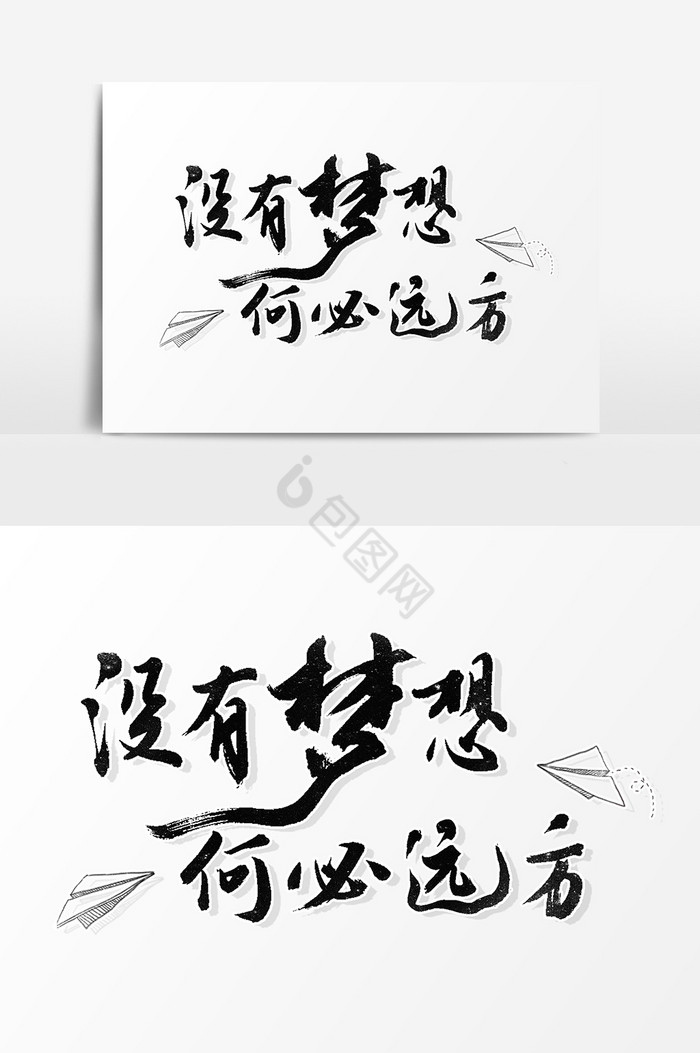 没有梦想
何必远方
包图网
没有梦想
何必远方